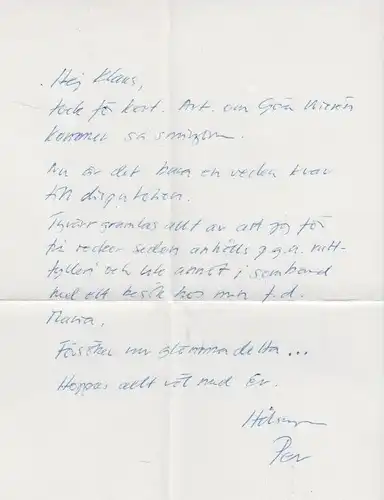 Hej Klaus,
tack för kort. Art. om Göran
kommer så småningom.
Nu är det bara en vecka kvar
till disputation.
Tyvärr grumlas allt av att jag för
två veckor sedan anhölls p.g.a. ratt-
fylleri och lite annat i samband
med ett besök hos min f.d.
fru.
Försöker nu glömma detta...
Hoppas allt väl med Er.
Hälsningar
Per